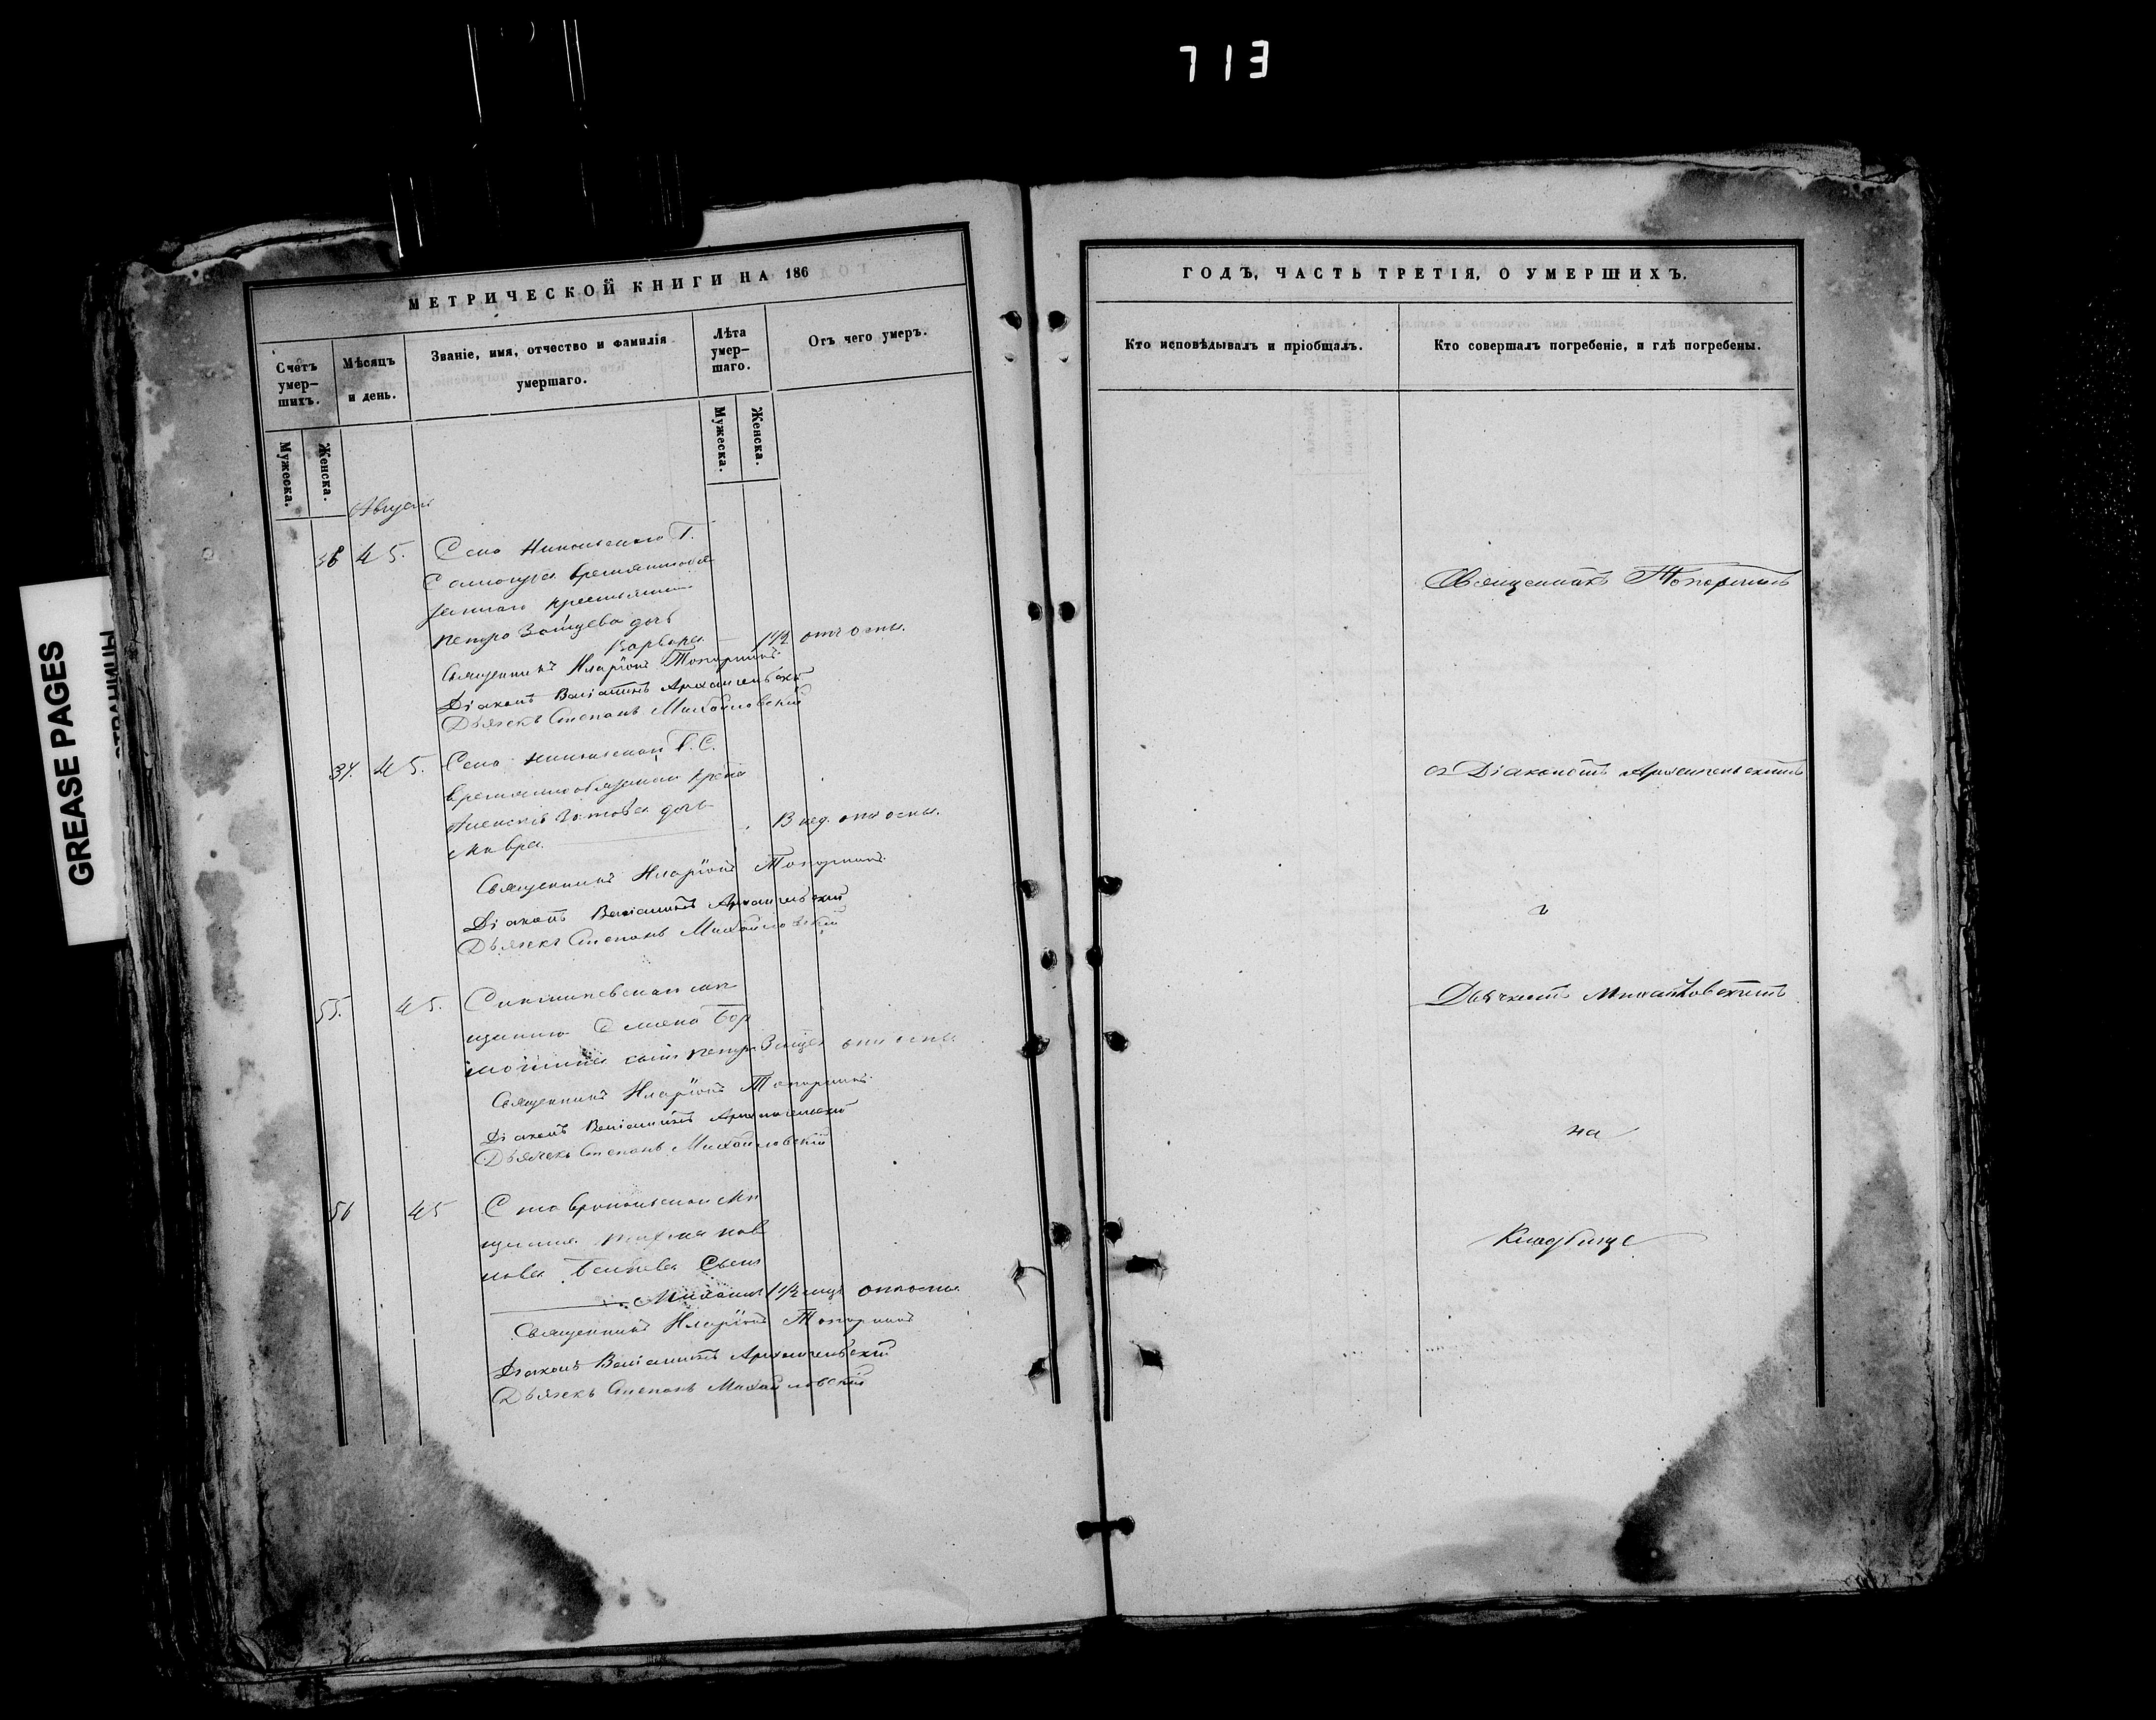 713
GREASE PAGES
МЕТРИЧЕСКОЙ КНИГИ НА 186
Счетъ умер-шихъ.
Мужеска.
Женска.
Мѣсяцъ и день.
Званіе, имя, отчество и фамилія умершаго.
Лѣта умер-шаго.
Мужеска.
Женска.
Отъ чего умеръ.
Августъ
36 4 5. Села Никольскаго Т.
временнообя
заннаго крестьянина
Петра Зайцева дочь
Варвара 1 1/2 отъ оспы.
Священникъ Иларіонъ Топорнинъ
Діаконъ Веніаминъ Архангельскій
Дьячекъ Степанъ Михайловскій
37. 4 5. Села Никольскаго Т. С.
временнообязаннаго крест
Алексѣя Зотова дочь
Мавра. 3 нед. отъ оспы.
Священникъ Иларіонъ Топорнинъ
Діаконъ Веніаминъ Архангельскій
Дьячекъ Степанъ Михайловскій
55. 4 5.
щанина Семена
сынъ Петръ отъ оспы
Священникъ Иларіонъ Топорнинъ
Діаконъ Веніаминъ Архангельскій
Дьячекъ Степанъ Михайловскій
56 4 5 Ставропольскаго мѣ
щанина
сынъ
Михаилъ 1 1/2 отъ оспы
Священникъ Иларіонъ Топорнинъ
Діаконъ Веніаминъ Архангельскій
Дьячекъ Степанъ Михайловскій
ГОДЪ, ЧАСТЬ ТРЕТІЯ, О УМЕРШИХЪ.
Кто исповѣдывалъ и пріобщалъ.
Кто совершалъ погребеніе, и гдѣ погребены.
Священникъ Топорнинъ
съ Діакономъ Архангельскимъ
и
Дьячкомъ Михайловскимъ
на
Кладбище